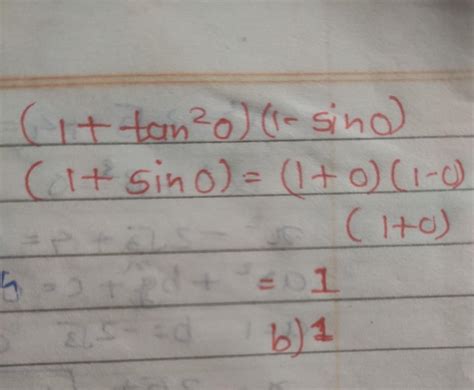 (1+ tan²0)(1- sin0)
(1+ sin0) = (1+0)(1-0)
(1+0)
= 1
b) 1